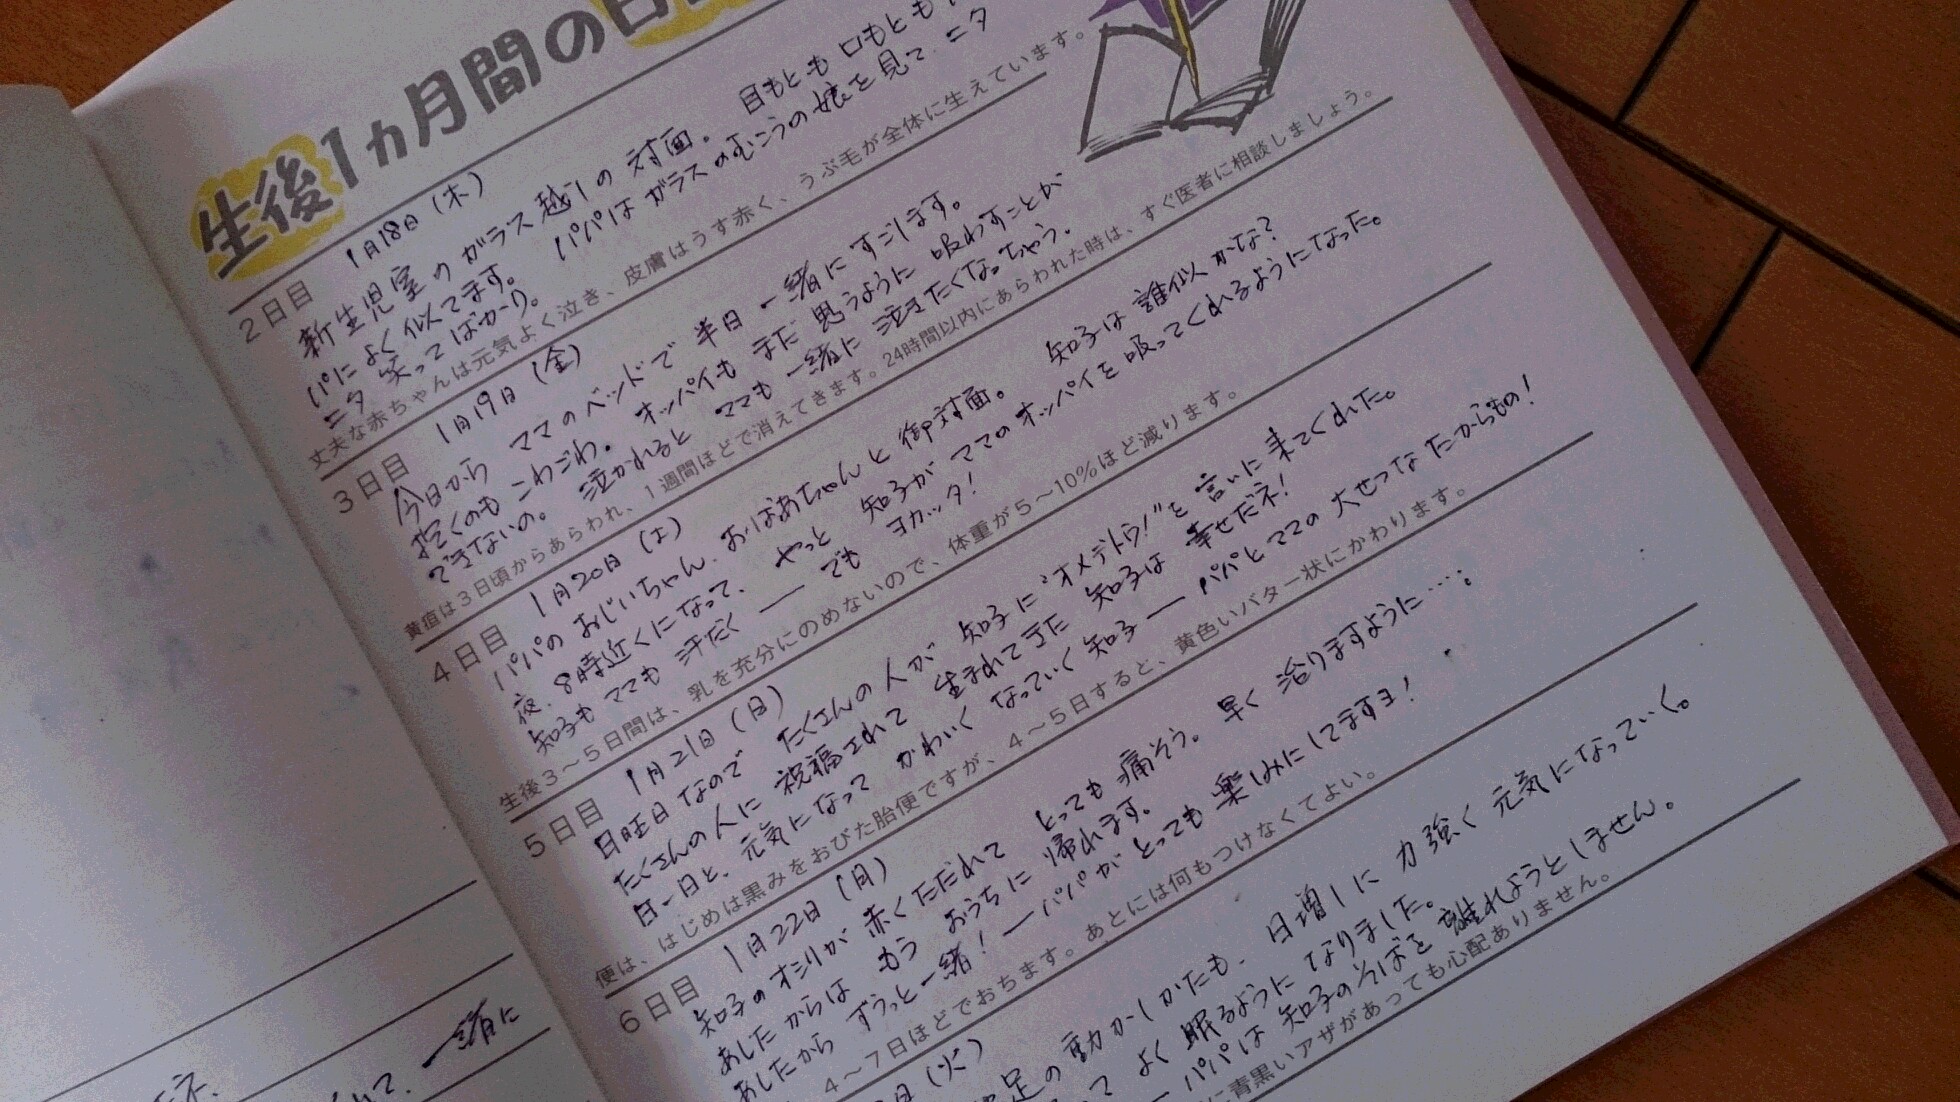 生後1ヵ月間の日
2日目 1月18日(木)
新生児室のガラス越しの対面。目もとも口もとも
パによく似てます。パパはガラスのむこうの娘を見て、ニタ
ニタ笑ってばかり。
丈夫な赤ちゃんは元気よく泣き、皮膚はうす赤く、うぶ毛が全体に生えています。
3日目 1月19日(金)
今日からママのベッドで半日一緒にすごします。
抱くのもこわごわ。オッパイもまだ思うように吸わすことが
できないの。泣かれるとママも一緒に泣きたくなっちゃう。
黄疸は3日頃からあらわれ、1週間ほどで消えてきます。24時間以内にあらわれた時は、すぐ医者に相談しましょう。
4日目 1月20日(土)
パパのおじいちゃん、おばあちゃんと御対面。知子は誰似かな?
夜、8時近くになって、やっと知子がママのオッパイを吸ってくれるようになった。
知子もママも汗だく──でもヨカッタ!
生後3〜5日間は、乳を充分にのめないので、体重が5〜10%ほど減ります。
5日目 1月21日(日)
日曜日なのでたくさんの人が知子に"オメデトウ!"を言いに来てくれた。
たくさんの人に祝福されて生まれてきた知子は幸せだネ!
日一日と、元気になってかわいくなっていく知子──パパとママの大せつなたからもの!
便は、はじめは黒みをおびた胎便ですが、4〜5日すると、黄色いバター状にかわります。
6日目 1月22日(月)
知子のオシリが赤くただれてとっても痛そう。早く治りますように…。
あしたからはもうおうちに帰れます。
あしたからずうっと一緒!──パパがとっても楽しみにしてますヨ!
4〜7日ほどでおちます。あとには何もつけなくてよい。
日(火)
足の動かしかたも、日増しに力強く元気になっていく。
てよく眠るようになりました。
パパは知子のそばを離れようとしません。
に青黒いアザがあっても心配ありません。
一緒に